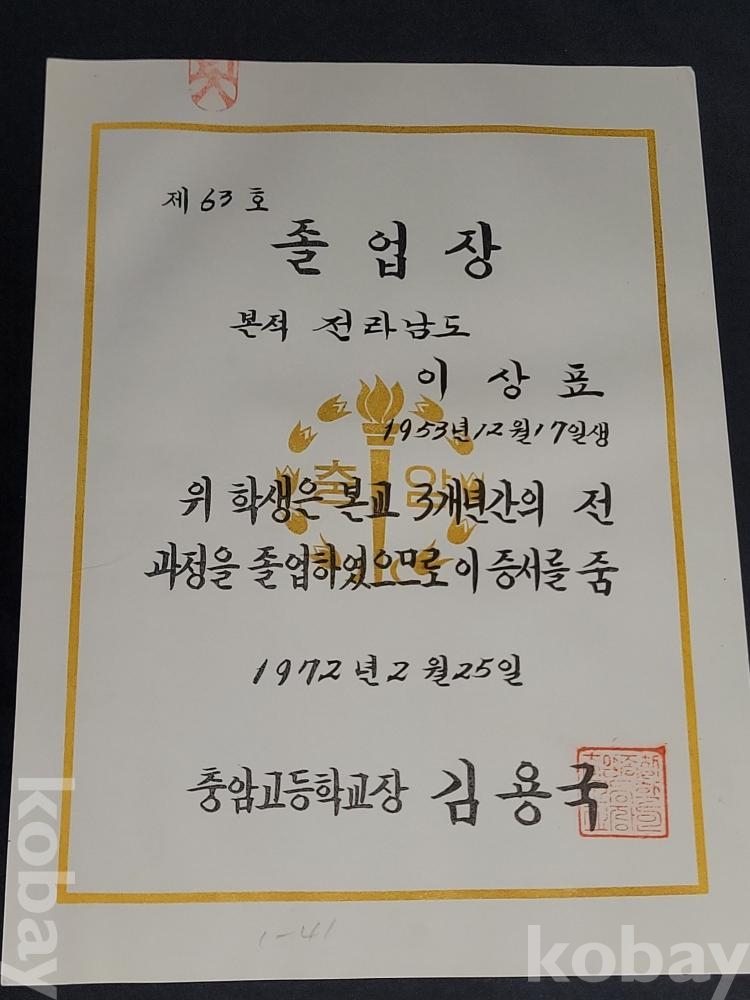 제 63 호
졸업장
본적 전라남도
이 상 표
1953년12월17일생
충암
위 학생은 본교 3개년간의 전
과정을 졸업하였으므로 이 증서를 줌
1972년 2월 25일
충암고등학교장 김용국
1-41
kobay
kobay